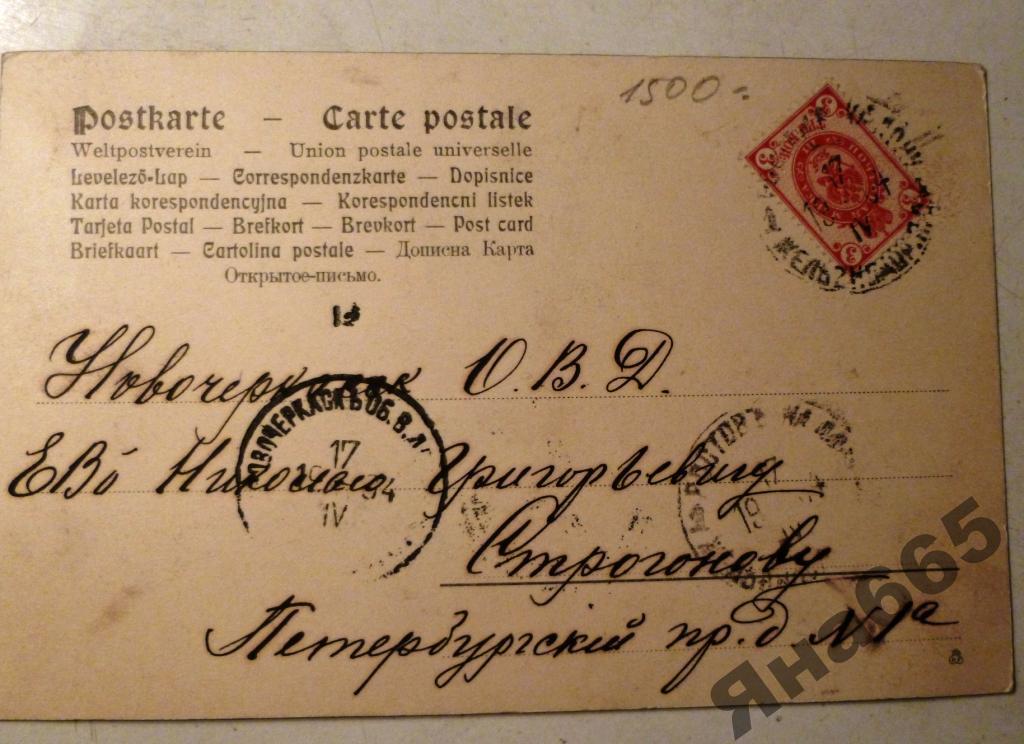 1500-
Postkarte — Carte postale
Weltpostverein — Union postale universelle
Levelező-Lap — Correspondenzkarte — Dopisnice
Karta korespondencyjna — Korespondencni listek
Tarjeta Postal — Brefkort — Brevkort — Post card
Briefkaart — Cartolina postale — Дописна Карта
Открытое-письмо.
Новочеркасск О. В. Д.
НОВОЧЕРКАСКЪ ОБ. В. Д.
17
IV
РОСТОВЪ НА ДОН
ЕВб Николаю Григорьевичу
Строгонову
Петербургский пр. д N 1а
3
3
17
IV
Яна665